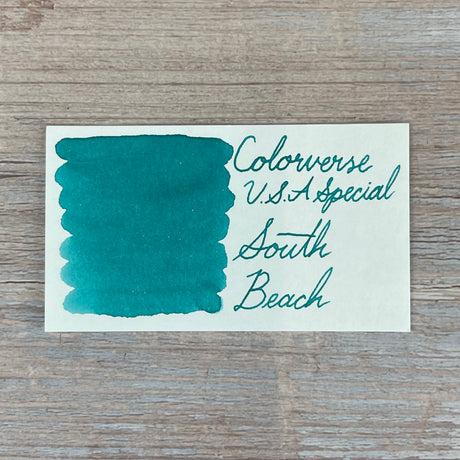 Colorverse
U.S.A Special
South
Beach